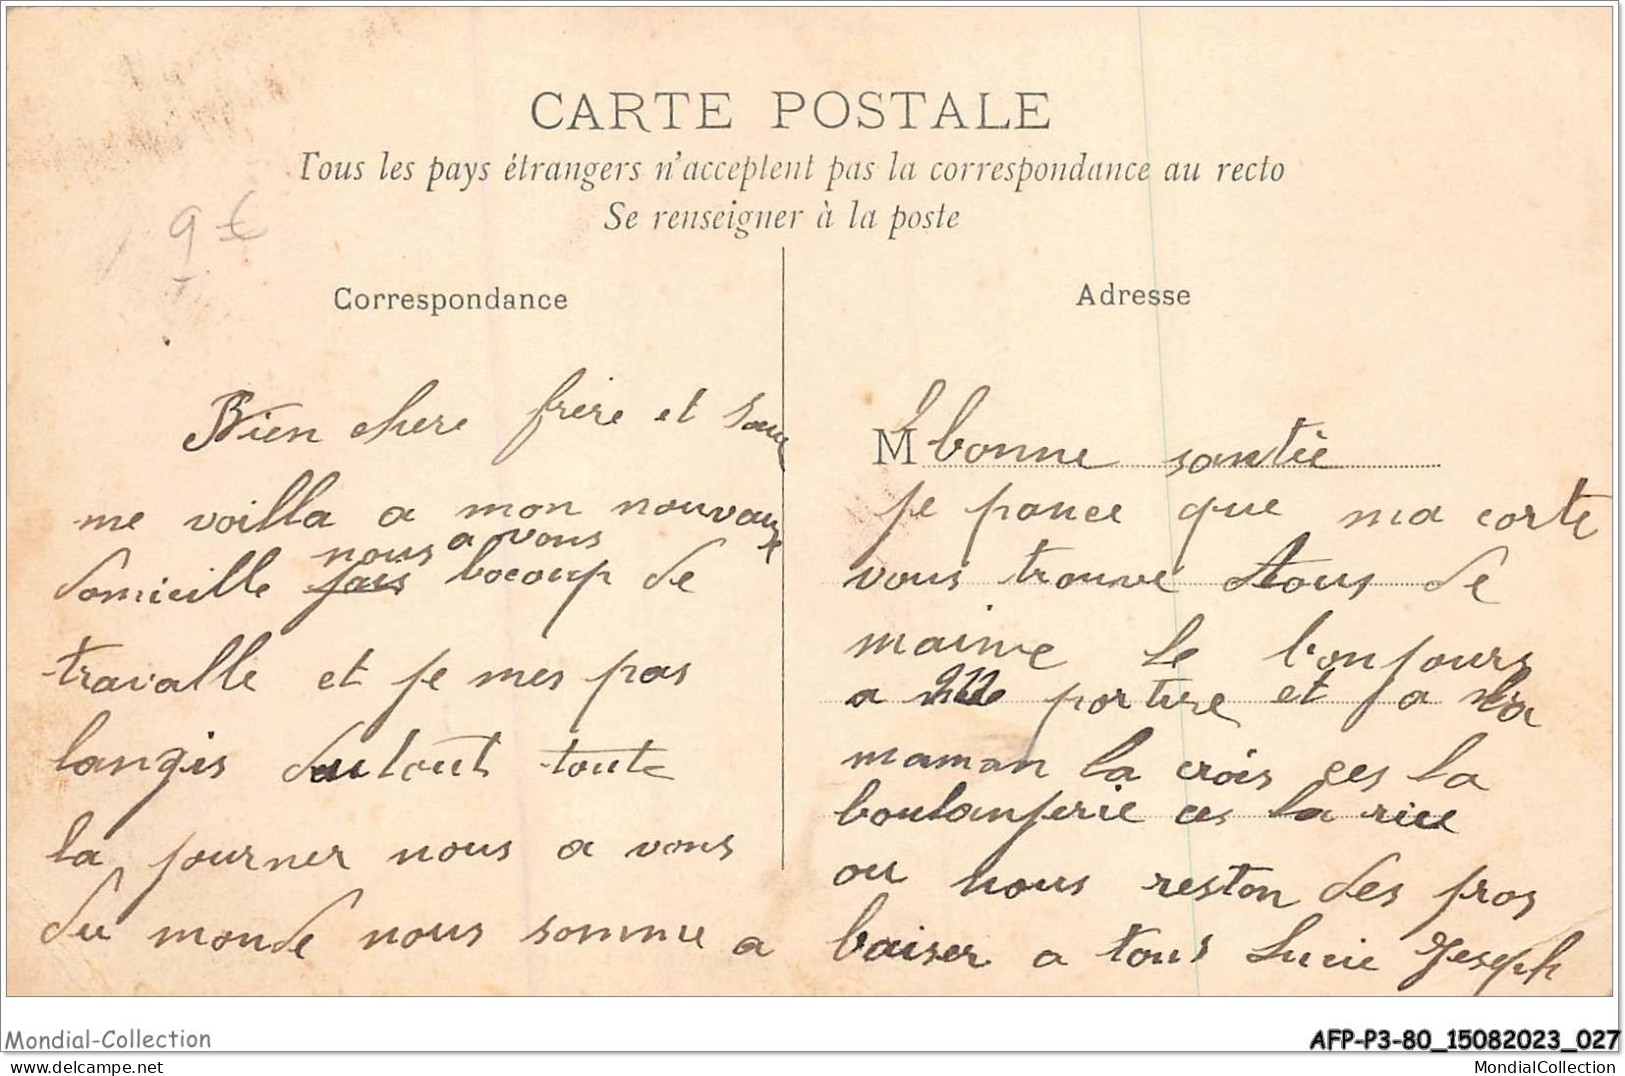 CARTE POSTALE
Tous les pays étrangers n'acceptent pas la correspondance au recto
Se renseigner à la poste
9 €
Correspondance
Adresse
Bien chere frère et Soeur
me voilla a mon nouvaux
nous a vons
domicille fais bocoup de
travalle et je mes pas
langis du tout toute
la journer nous a vons
du monde nous somme a
M bonne santèe
je pance que ma carte
vous trouve tous de
maime le bonjours
a porture et a
maman la crois ces la
boulanjerie ces la rue
ou nous reston des gros
baiser a tous Lucie Joseph
Mondial-Collection
AFP-P3-80_15082023_027
delcampe.net
MondialCollection